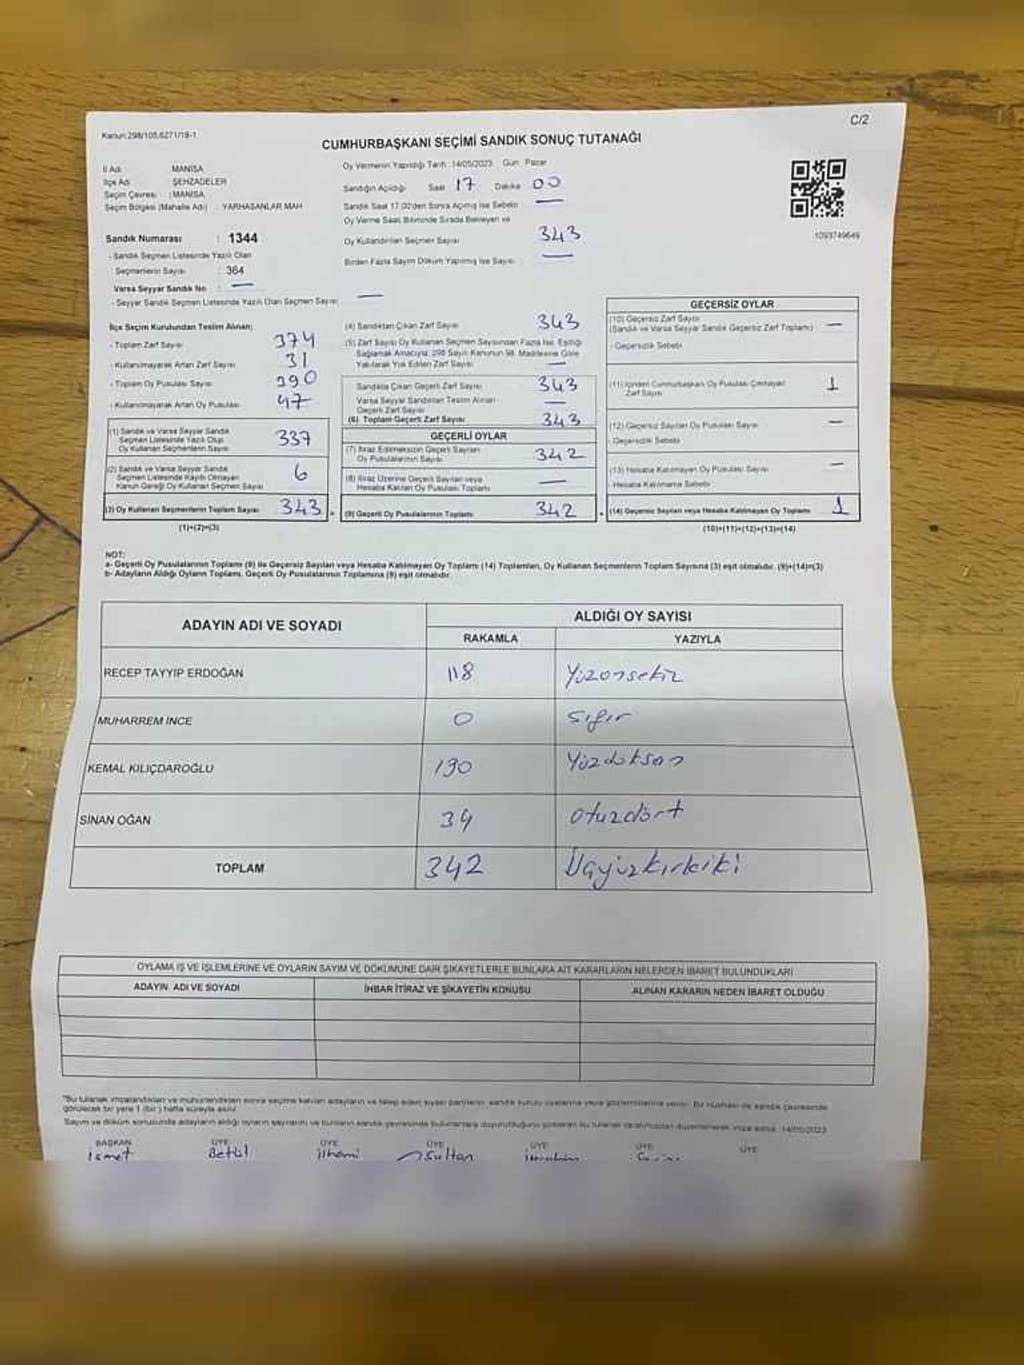 Kanun:298/105,6271/19-1
C/2
CUMHURBAŞKANI SEÇİMİ SANDIK SONUÇ TUTANAĞI
İl Adı : MANİSA
İlçe Adı : ŞEHZADELER
Seçim Çevresi : MANİSA
Seçim Bölgesi (Mahalle Adı) : YARHASANLAR MAH
Sandık Numarası : 1344
- Sandık Seçmen Listesinde Yazılı Olan
Seçmenlerin Sayısı : 364
Varsa Seyyar Sandık No : —
- Seyyar Sandık Seçmen Listesinde Yazılı Olan Seçmen Sayısı : —
Oy Vermenin Yapıldığı Tarih :14/05/2023 Gün : Pazar
Sandığın Açıldığı Saat 17 Dakika 00
Sandık Saat 17:00'den Sonra Açılmış İse Sebebi —
Oy Verme Saati Bitiminde Sırada Bekleyen ve
Oy Kullandırılan Seçmen Sayısı 343
Birden Fazla Sayım Döküm Yapılmış İse Sayısı : —
1093749649
İlçe Seçim Kurulundan Teslim Alınan;
- Toplam Zarf Sayısı : 374
- Kullanılmayarak Artan Zarf Sayısı : 31
- Toplam Oy Pusulası Sayısı : 390
- Kullanılmayarak Artan Oy Pusulası : 47
(1) Sandık ve Varsa Seyyar Sandık
Seçmen Listesinde Yazılı Olup
Oy Kullanan Seçmenlerin Sayısı 337
(2) Sandık ve Varsa Seyyar Sandık
Seçmen Listesinde Kayıtlı Olmayan
Kanun Gereği Oy Kullanan Seçmen Sayısı 6
(3) Oy Kullanan Seçmenlerin Toplam Sayısı 343
(1)+(2)=(3)
(4) Sandıktan Çıkan Zarf Sayısı 343
(5) Zarf Sayısı Oy Kullanan Seçmen Sayısından Fazla İse, Eşitliği
Sağlamak Amacıyla, 298 Sayılı Kanunun 98. Maddesine Göre
Yakılarak Yok Edilen Zarf Sayısı —
Sandıkta Çıkan Geçerli Zarf Sayısı 343
Varsa Seyyar Sandıktan Teslim Alınan
Geçerli Zarf Sayısı —
(6) Toplam Geçerli Zarf Sayısı 343
GEÇERLİ OYLAR
(7) İtiraz Edilmeksizin Geçerli Sayılan
Oy Pusulalarının Sayısı 342
(8) İtiraz Üzerine Geçerli Sayılan veya
Hesaba Katılan Oy Pusulası Toplamı —
(9) Geçerli Oy Pusulalarının Toplamı 342
GEÇERSİZ OYLAR
(10) Geçersiz Zarf Sayısı
(Sandık ve Varsa Seyyar Sandık Geçersiz Zarf Toplamı) —
- Geçersizlik Sebebi
(11) İçinden Cumhurbaşkanı Oy Pusulası Çıkmayan
Zarf Sayısı 1
(12) Geçersiz Sayılan Oy Pusulası Sayısı —
- Geçersizlik Sebebi
(13) Hesaba Katılmayan Oy Pusulası Sayısı —
- Hesaba Katılmama Sebebi
(14) Geçersiz Sayılan veya Hesaba Katılmayan Oy Toplamı 1
(10)+(11)+(12)+(13)=(14)
NOT:
a- Geçerli Oy Pusulalarının Toplamı (9) ile Geçersiz Sayılan veya Hesaba Katılmayan Oy Toplamı (14) Toplamları, Oy Kullanan Seçmenlerin Toplam Sayısına (3) eşit olmalıdır. (9)+(14)=(3)
b- Adayların Aldığı Oyların Toplamı, Geçerli Oy Pusulalarının Toplamına (9) eşit olmalıdır.
ADAYIN ADI VE SOYADI
ALDIĞI OY SAYISI
RAKAMLA YAZIYLA
RECEP TAYYİP ERDOĞAN 118 Yüzonsekiz
MUHARREM İNCE 0 Sıfır
KEMAL KILIÇDAROĞLU 190 Yüzdoksan
SİNAN OĞAN 34 Otuzdört
TOPLAM 342 Üçyüzkırkiki
OYLAMA İŞ VE İŞLEMLERİNE VE OYLARIN SAYIM VE DÖKÜMÜNE DAİR ŞİKAYETLERLE BUNLARA AİT KARARLARIN NELERDEN İBARET BULUNDUKLARI
ADAYIN ADI VE SOYADI İHBAR İTİRAZ VE ŞİKAYETİN KONUSU ALINAN KARARIN NEDEN İBARET OLDUĞU
görülecek bir yere 1 (bir) hafta süreyle asılır.
BAŞKAN ÜYE ÜYE ÜYE ÜYE ÜYE ÜYE
İsmet Betül İlhami Sultan